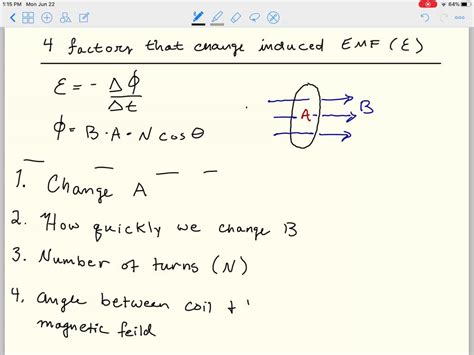 1:15 PM Mon Jun 22
64%
4 factors that change induced EMF (ε)
ε = - Δϕ / Δt
ϕ = B · A · N cos θ
A
B
1. Change A
2. How quickly we change B
3. Number of turns (N)
4. angle between coil +
magnetic feild